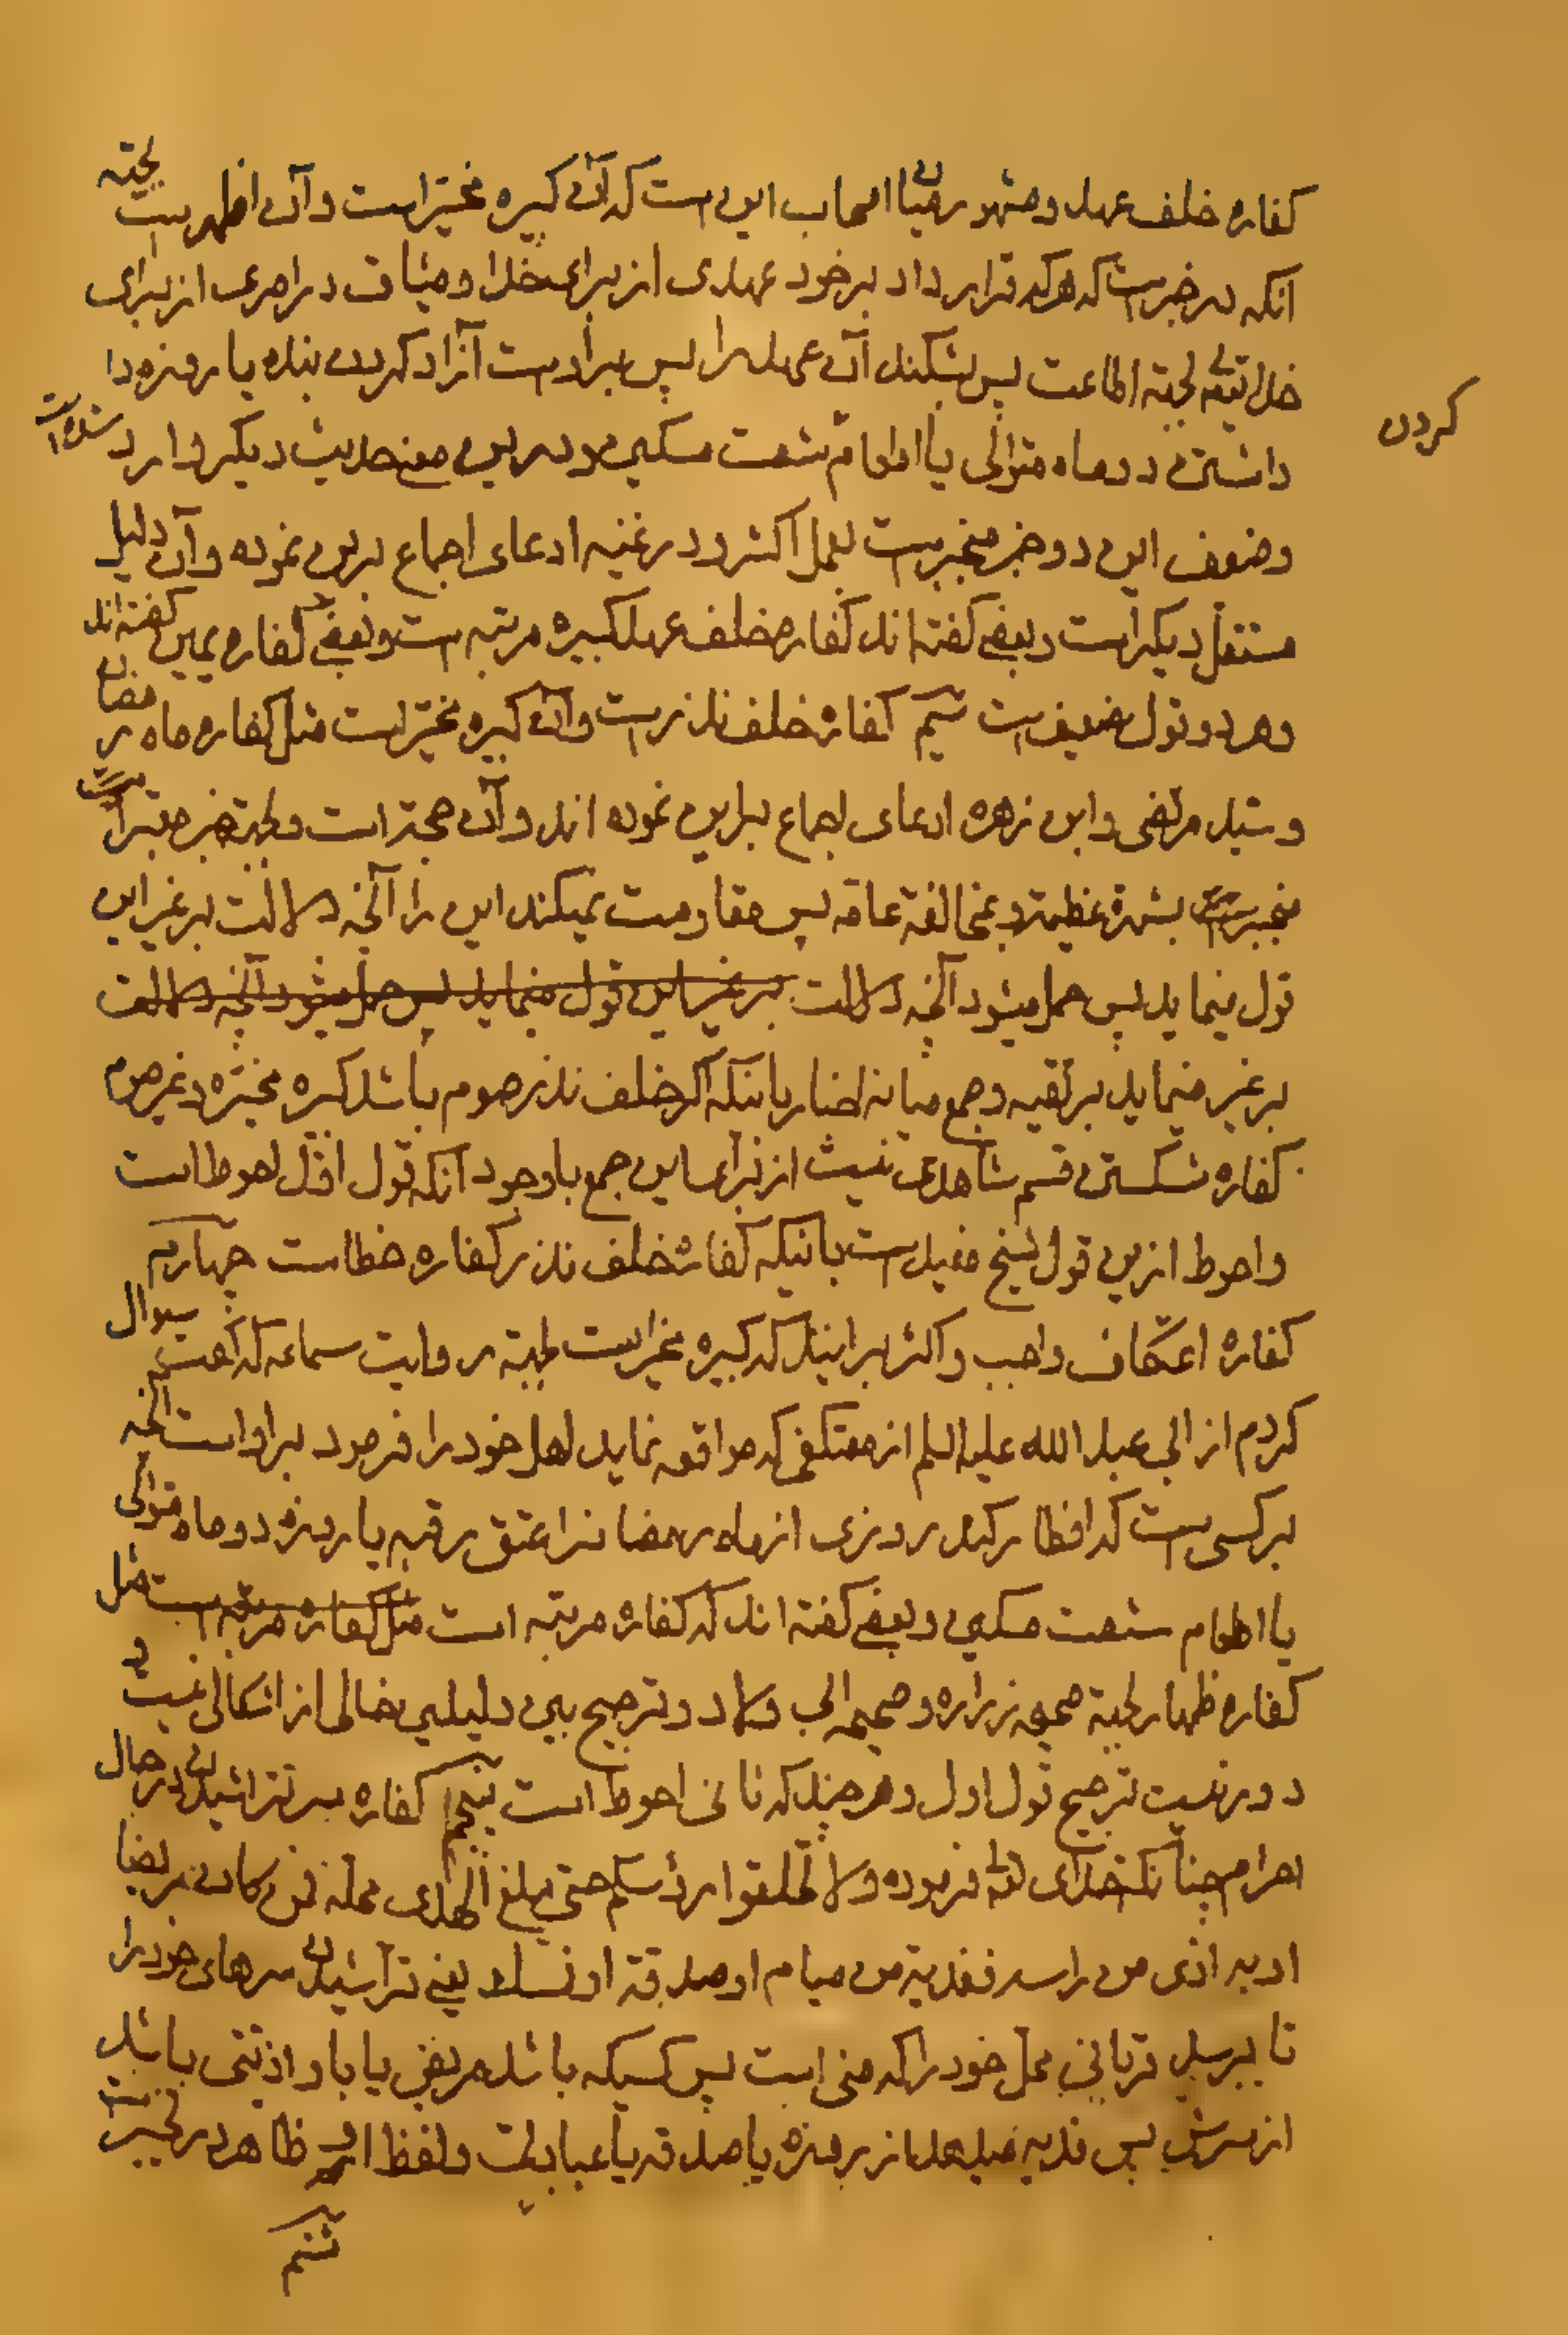 کفاره خلف عهد و مشهور میان اصحاب این است که آن کبیره مخیّر است و آن اظهر است بجهته
آنکه در خبر است که هر که قرار داد بر خود عهدی از برای خدا و میثاق در امری از برای
خدا تعالی بجهة اطاعت پس بشکند آن عهد را پس بر اوست آزاد کردن بنده یا روزه
داشتن دو ماه متوالی یا اطعام شصت مسکین و درین معنی حدیث دیگر وارد شده است
کردن
وضعف این دو خبر منجبر است بعمل اکثر و در غنیه ادعای اجماع برین نموده و آن دلیل
مستقل دیگر است و بعضی گفته اند کفاره خلف عهد کبیره مرتبه است و بعضی کفاره یمین گفته اند
و هر دو قول ضعیف است سیّم کفاره خلف نذر است و آن کبیره مخیّر است مثل کفاره ماه رمضان
و سیّد مرتضی و ابن زهره ادعای اجماع براین نموده اند و آن حجة است و بجهة خبر معتبر است
منجبر است بشهرة عظیمة و بمخالفة عامّه پس مقاومت نمیکند این را آنچه دلالت بر غیر این
قول مینماید پس حمل میشود آنچه دلالت بر غیر این قول مینماید پس حمل میشود آنچه دلالت
بر غیر مینماید بر تقیه و جمع میانه اخبار باینکه اگر خلف نذر صوم باشد کبیره مخیّره و غیر صوم
کفاره شکستن قسم شاهدی نیست از برای این جمع با وجود آنکه قول اوّل احوط است
و احوط ازین قول شیخ مفید است باینکه کفاره خلف نذر کفاره خطا است چهارم
کفاره اعتکاف واجب و اکثر برانند که کبیره مخیّر است بجهة روایت سماعه که گفت سوال
کردم از ابی عبد الله علیه السلم از معتکفی که مواقعه نماید اهل خود را فرمود بر او است آنچه
بر کسی است که افطار کند روزی از ماه رمضان را عتق رقبه یا روزه دو ماه متوالی
یا اطعام شصت مسکین و بعضی گفته اند که کفاره مرتبه است مثل کفاره مرتبه است مثل
کفاره ظهار بجهة صحیحه زراره و صحیحه ابی ولاد و ترجیح بین دلیلین خالی از اشکالی نیست و
دور نیست ترجیح قول اول و هر چند که ثانی احوط است پنجم کفاره سر تراشیدن در حال
احرام چنانکه خدای تعالی فرموده ولا تحلقوا رؤسکم حتی یبلغ الهدی محلّه فمن کان مریضا
او به اذی من راسه ففدیة من صیام او صدقة او نسک یعنی نتراشید سرهای خود را
تا برسد قربانی محلّ خود را که منی است پس کسیکه باشد مریض یا با او اذیّتی باشد
از سرش پس فدیه میدهد از روزه یا صدقه یا عبادت و لفظ او ظاهر در تخییر است
ششم